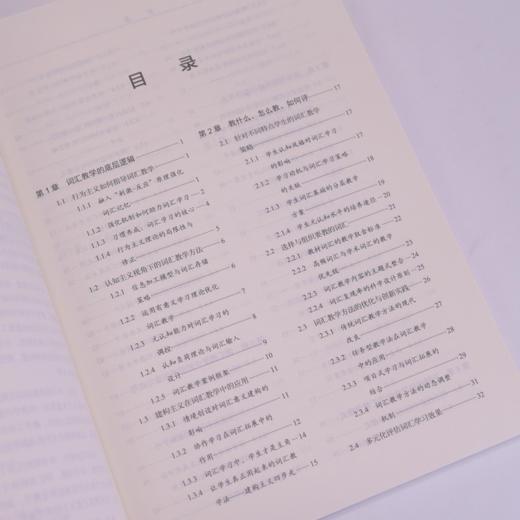 目 录
第1章 词汇教学的底层逻辑 1
1.1 行为主义如何指导词汇教学 1
1.1.1 融入“刺激-反应”原理强化
词汇记忆 1
1.1.2 强化机制如何助力词汇学习 2
1.1.3 习惯养成：词汇学习的核心 4
1.1.4 行为主义理论的局限性与
修正 5
1.2 认知主义视角下的词汇教学方法 6
1.2.1 信息加工模型与词汇存储
策略 6
1.2.2 运用有意义学习理论优化
词汇教学 7
1.2.3 元认知能力对词汇学习的
调控 8
1.2.4 认知负荷理论与词汇输入
设计 9
1.2.5 词汇教学案例框架 10
1.3 建构主义在词汇教学中的应用 11
1.3.1 情境创设对词汇意义建构的
影响 11
1.3.2 协作学习在词汇拓展中的
作用 13
1.3.3 词汇学习中，学生才是主角 14
1.3.4 让学生真正用起来的词汇教
学法——建构主义四步式 15
第2章 教什么、怎么教、如何评 17
2.1 针对不同特点学生的词汇教学
策略 17
2.1.1 学生认知风格对词汇学习
的影响 17
2.1.2 学习动机与词汇学习策略
的关联
2.1.3 学生词汇基础的分层教学
方案
2.1.4 学生元认知水平的培养途径
2.2 选择与组织要教的词汇
2.2.1 教材词汇的教学取舍标准
2.2.2 高频词汇与学术词汇的教学
优先级
2.2.3 词汇教学内容的主题式整合
2.2.4 词汇复现率的科学设计原则
2.3 词汇教学方法的优化与创新实践
2.3.1 传统词汇教学方法的现代
改良
2.3.2 任务型教学法在词汇教学
中的应用 28
2.3.3 项目式学习与词汇拓展的
结合 29
2.3.4 词汇教学方法的动态调整
机制 31
2.4 多元化评估词汇学习效果 32